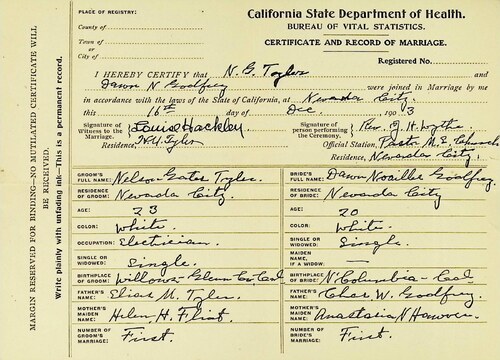 PLACE OF REGISTRY:
County of
Town of
or
City of
California State Department of Health.
BUREAU OF VITAL STATISTICS.
CERTIFICATE AND RECORD OF MARRIAGE.
Registered No.
I HEREBY CERTIFY that N. G. Tyler and
Dawn N Godfrey were joined in Marriage by me
in accordance with the laws of the State of California, at Nevada City.
this 16th day of Dec. 1903
Signature of Witness to the Marriage, Louise Hackley
Residence, N. G. Tyler
Signature of person performing the Ceremony, Rev. J. H. Wythe
Official Station, Pastor M. E. Church
Residence, Nevada City.
GROOM'S FULL NAME: Nelson Gates Tyler.
RESIDENCE OF GROOM: Nevada City
AGE: 23
COLOR: White.
OCCUPATION: Electrician.
SINGLE OR WIDOWED: Single.
BIRTHPLACE OF GROOM: Willows - Glenn Co Cal
FATHER'S NAME: Elias M. Tyler.
MOTHER'S MAIDEN NAME: Helen H. Flint
NUMBER OF GROOM'S MARRIAGE: First.
BRIDE'S FULL NAME: Dawn Noaille Godfrey
RESIDENCE OF BRIDE: Nevada City
AGE: 20
COLOR: White.
SINGLE OR WIDOWED: Single.
MAIDEN NAME, IF A WIDOW:
BIRTHPLACE OF BRIDE: N Columbia - Cal
FATHER'S NAME: Chas W. Godfrey.
MOTHER'S MAIDEN NAME: Anastasia N Hanover
NUMBER OF BRIDE'S MARRIAGE: First.
MARGIN RESERVED FOR BINDING—NO MUTILATED CERTIFICATE WILL BE RECEIVED.
Write plainly with unfading ink—This is a permanent record.